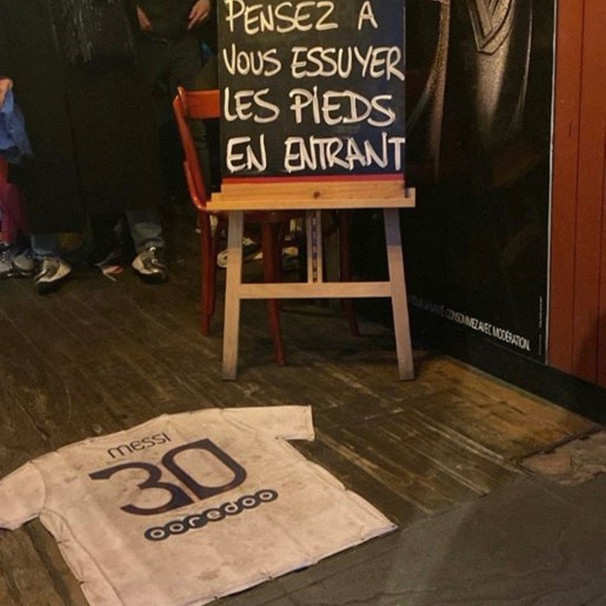 PENSEZ A
VOUS ESSUYER
LES PIEDS
EN ENTRANT
CONSOMMEZ AVEC MODÉRATION.
messi
30
ooredoo